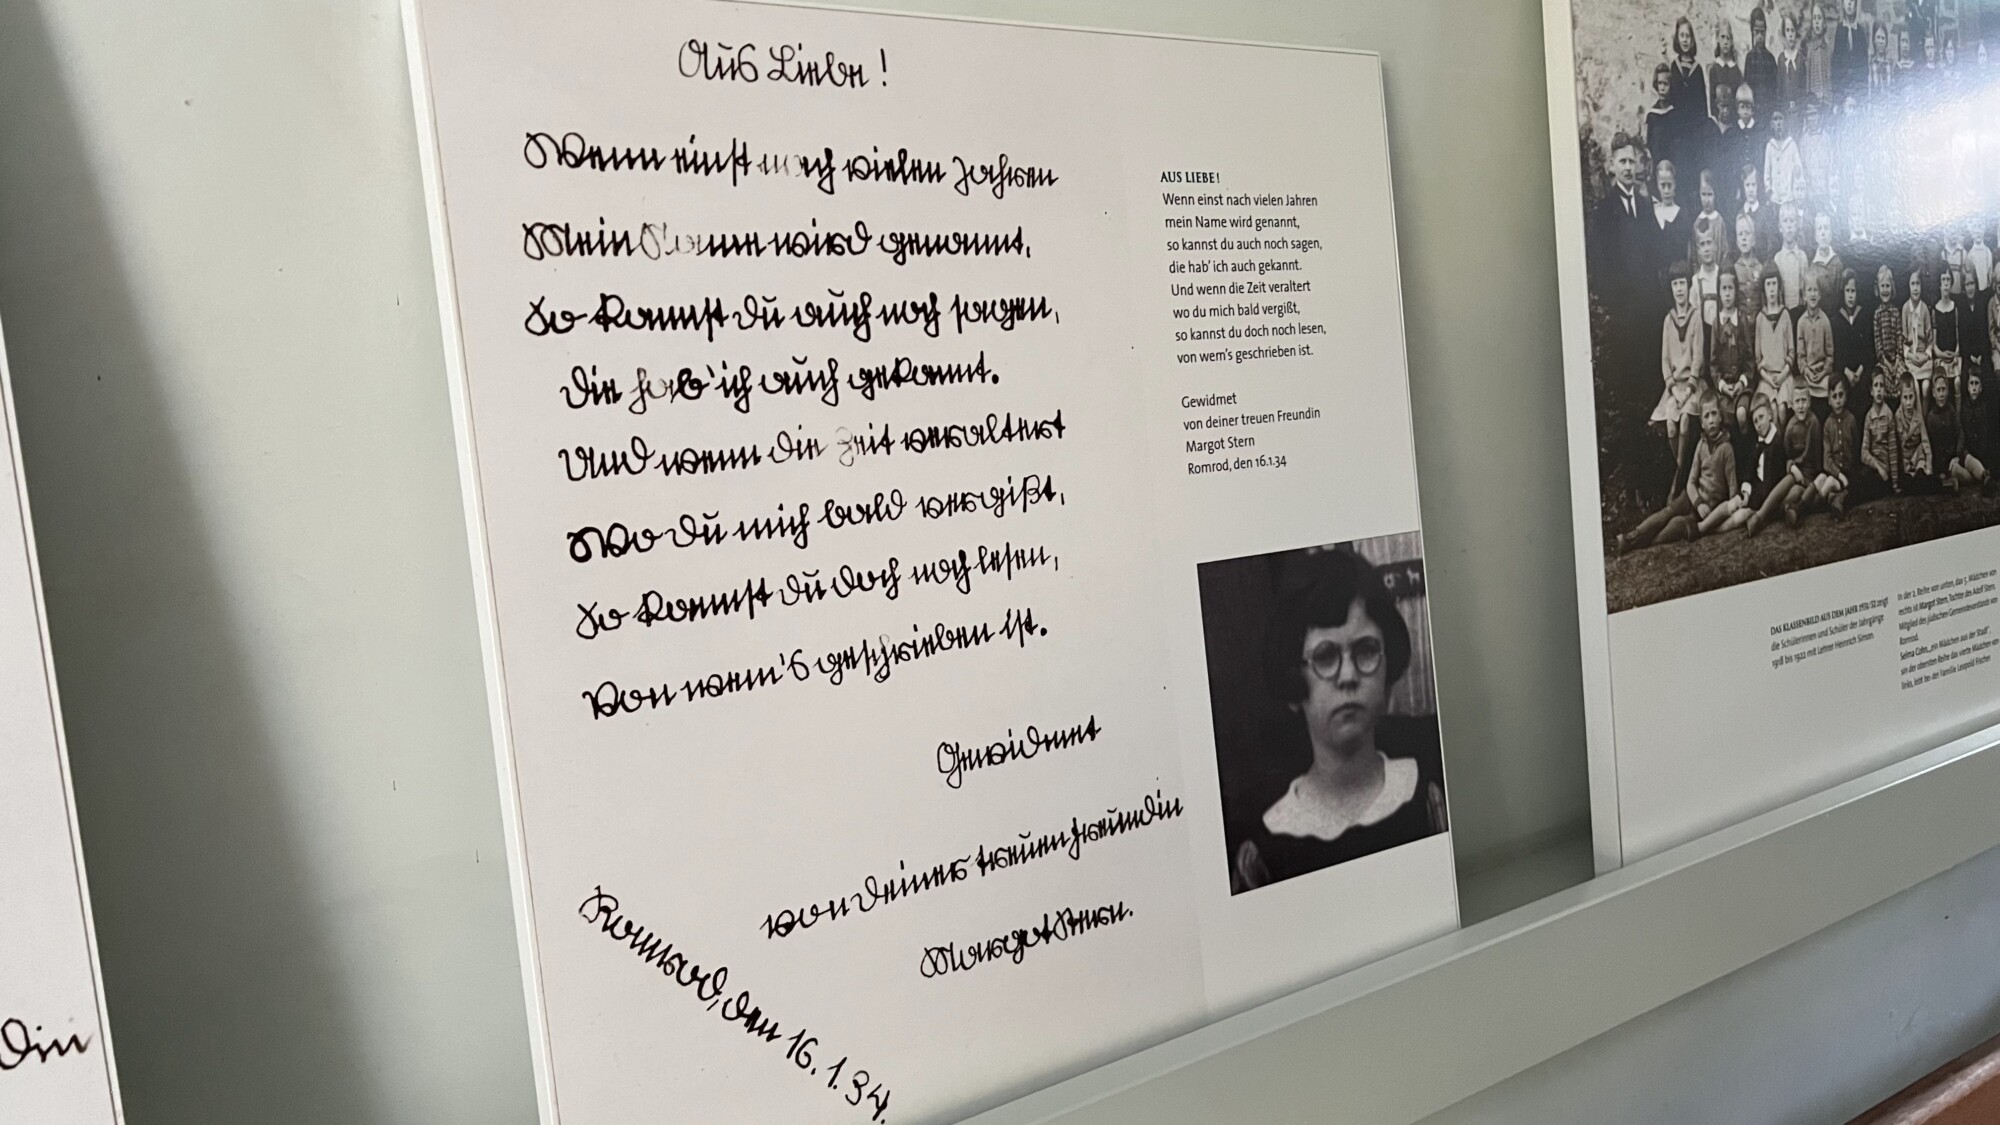 Aus Liebe!
Wenn einst nach vielen Jahren
Mein Name wird genannt,
So kannst du auch noch sagen,
die hab' ich auch gekannt.
Und wenn die Zeit veraltert
Wo du mich bald vergißt,
So kannst du doch noch lesen,
von wem's geschrieben ist.
Gewidmet
von deiner treuen Freundin
Margot Stern.
Romrod, den 16.1.34.
AUS LIEBE!
Wenn einst nach vielen Jahren
mein Name wird genannt,
so kannst du auch noch sagen,
die hab' ich auch gekannt.
Und wenn die Zeit veraltert
wo du mich bald vergißt,
so kannst du doch noch lesen,
von wem's geschrieben ist.
Gewidmet
von deiner treuen Freundin
Margot Stern
Romrod, den 16.1.34
DAS KLASSENBILD AUS DEM JAHR 1931/32 zeigt
die Schülerinnen und Schüler der Jahrgänge
1918 bis 1922 mit Lehrer Heinrich Simon.
In der 2. Reihe von unten, das 5. Mädchen von
rechts ist Margot Stern, Tochter des Adolf Stern,
Mitglied des jüdischen Gemeindevorstands von
Romrod.
Selma Cohn, „ein Mädchen aus der Stadt",
in der obersten Reihe das vierte Mädchen von
links, lebt bei der Familie Leopold Fischer
die